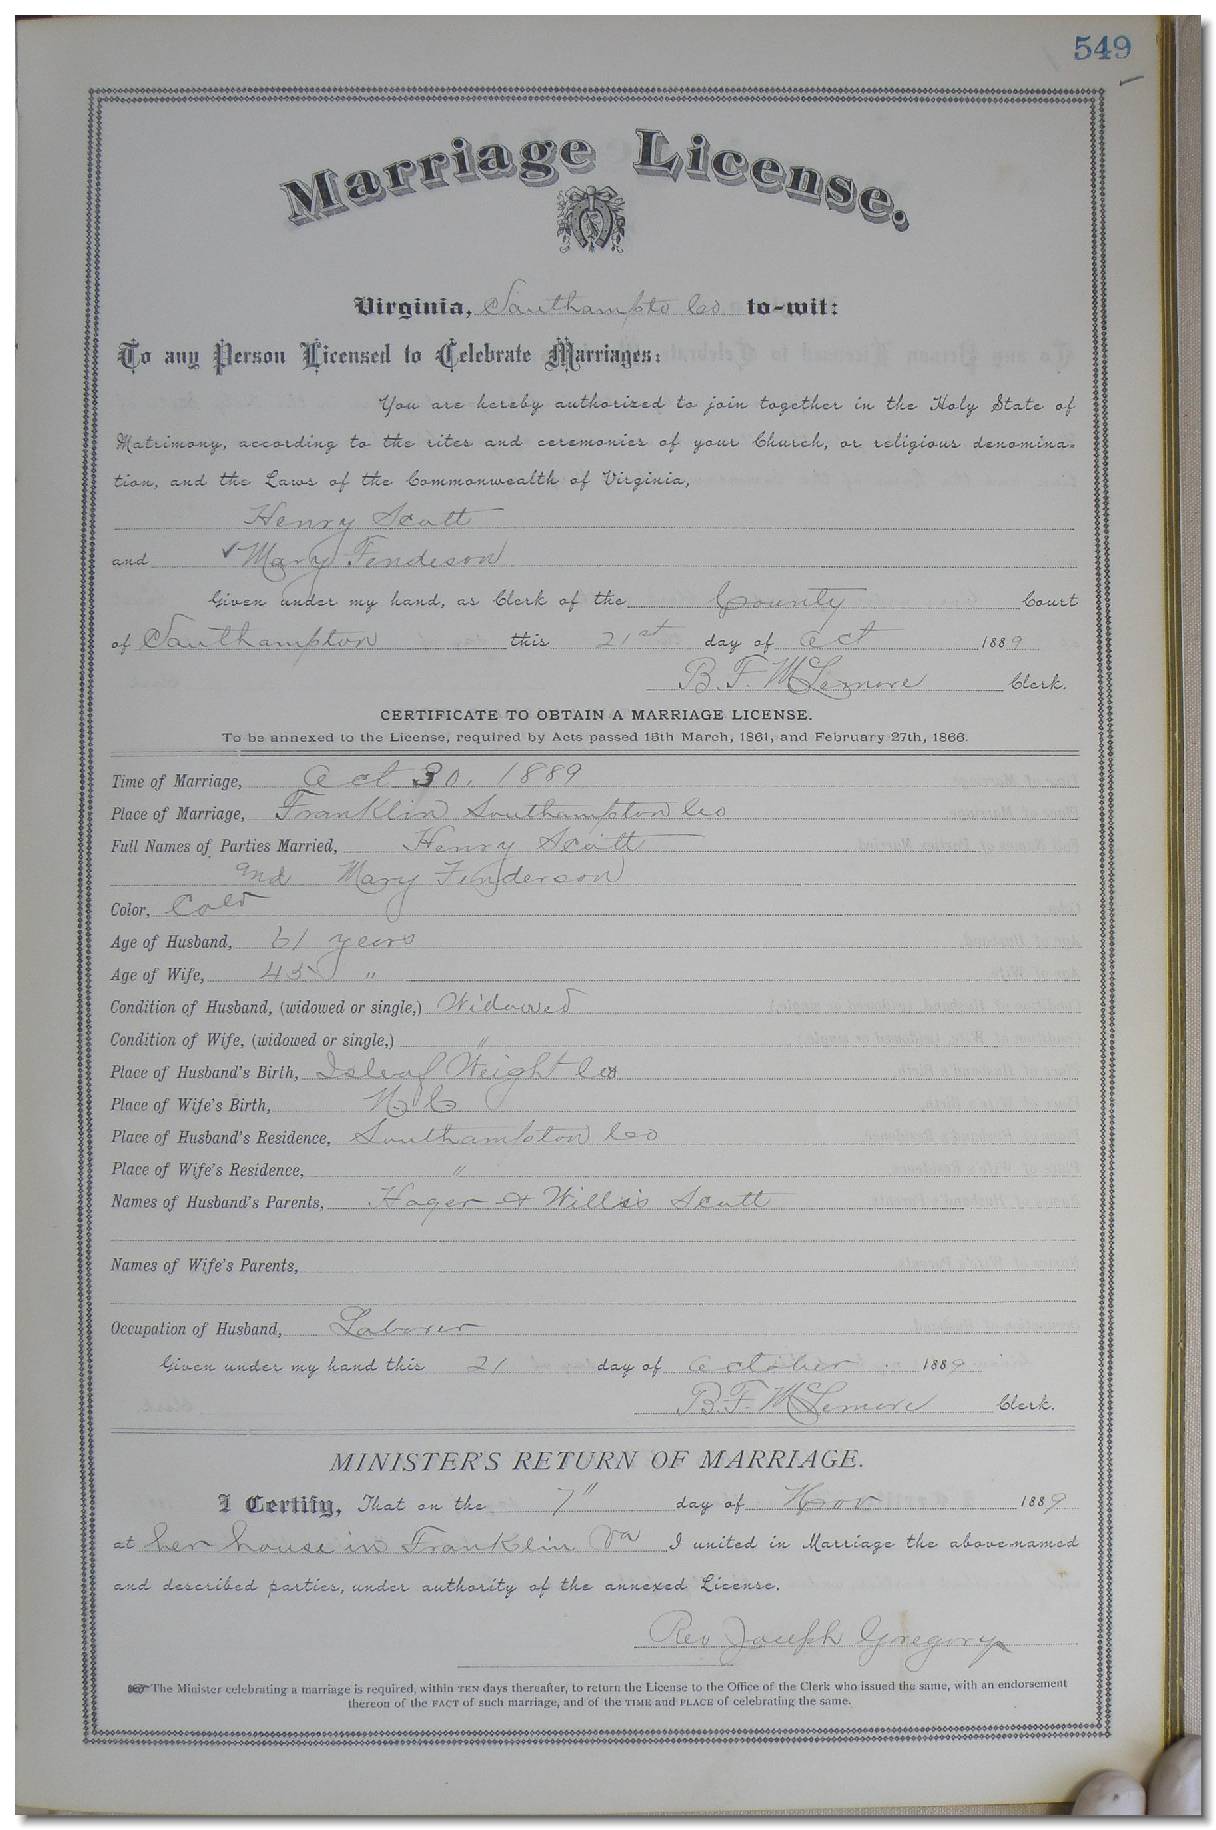 549
Marriage License.
Virginia, Southampto Co to-wit:
To any Person Licensed to Celebrate Marriages:
You are hereby authorized to join together in the Holy State of
Matrimony, according to the rites and ceremonies of your Church, or religious denomina-
tion, and the Laws of the Commonwealth of Virginia,
Henry Scott
and ✓ Mary Fendeson
Given under my hand, as Clerk of the County Court
of Southampton this 21st day of Oct 1889
B. F. McLemore Clerk.
CERTIFICATE TO OBTAIN A MARRIAGE LICENSE.
To be annexed to the License, required by Acts passed 15th March, 1861, and February 27th, 1866.
Time of Marriage, Oct 30, 1889
Place of Marriage, Franklin Southampton Co
Full Names of Parties Married, Henry Scott
and Mary Fenderson
Color, Cold
Age of Husband, 61 years
Age of Wife, 45 "
Condition of Husband, (widowed or single,) Widowed
Condition of Wife, (widowed or single,) "
Place of Husband's Birth, Isle of Weight Co
Place of Wife's Birth, N C
Place of Husband's Residence, Southampton Co
Place of Wife's Residence, "
Names of Husband's Parents, Hager & Willis Scott
Names of Wife's Parents,
Occupation of Husband, Laborer
Given under my hand this 21 day of October 1889
B. F. McLemore Clerk.
MINISTER'S RETURN OF MARRIAGE.
I Certify, That on the 7" day of Nov 1889
at her house in Franklin Va I united in Marriage the above-named
and described parties, under authority of the annexed License.
Rev Joseph Gregory
☞ The Minister celebrating a marriage is required, within TEN days thereafter, to return the License to the Office of the Clerk who issued the same, with an endorsement
thereon of the FACT of such marriage, and of the TIME and PLACE of celebrating the same.